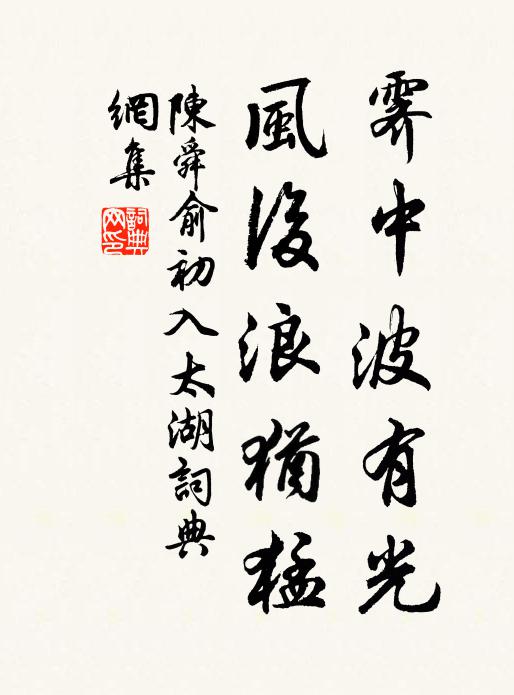 霽中波有光
風後浪猶猛
陳舜俞初入太湖詞典
網集
詞典
网印